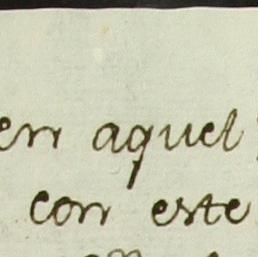 en aquel
con este